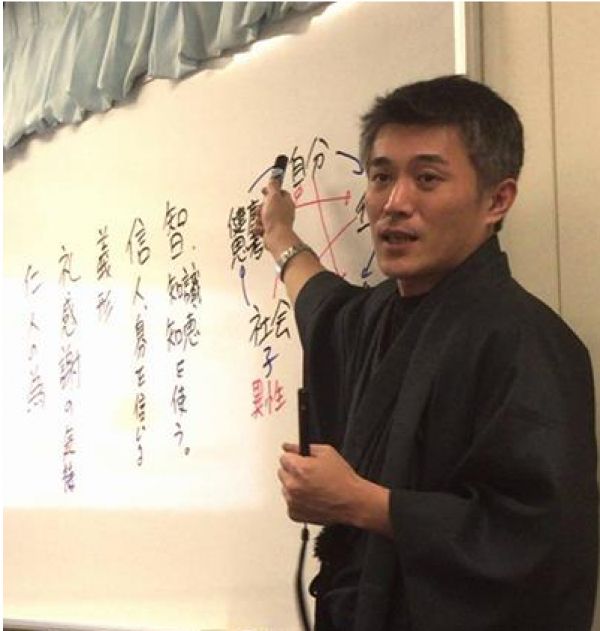 自分
社会
子
異性
智、知識知恵を使う。
信人、易を信ずる
義形
礼感謝の気持
仁人の為